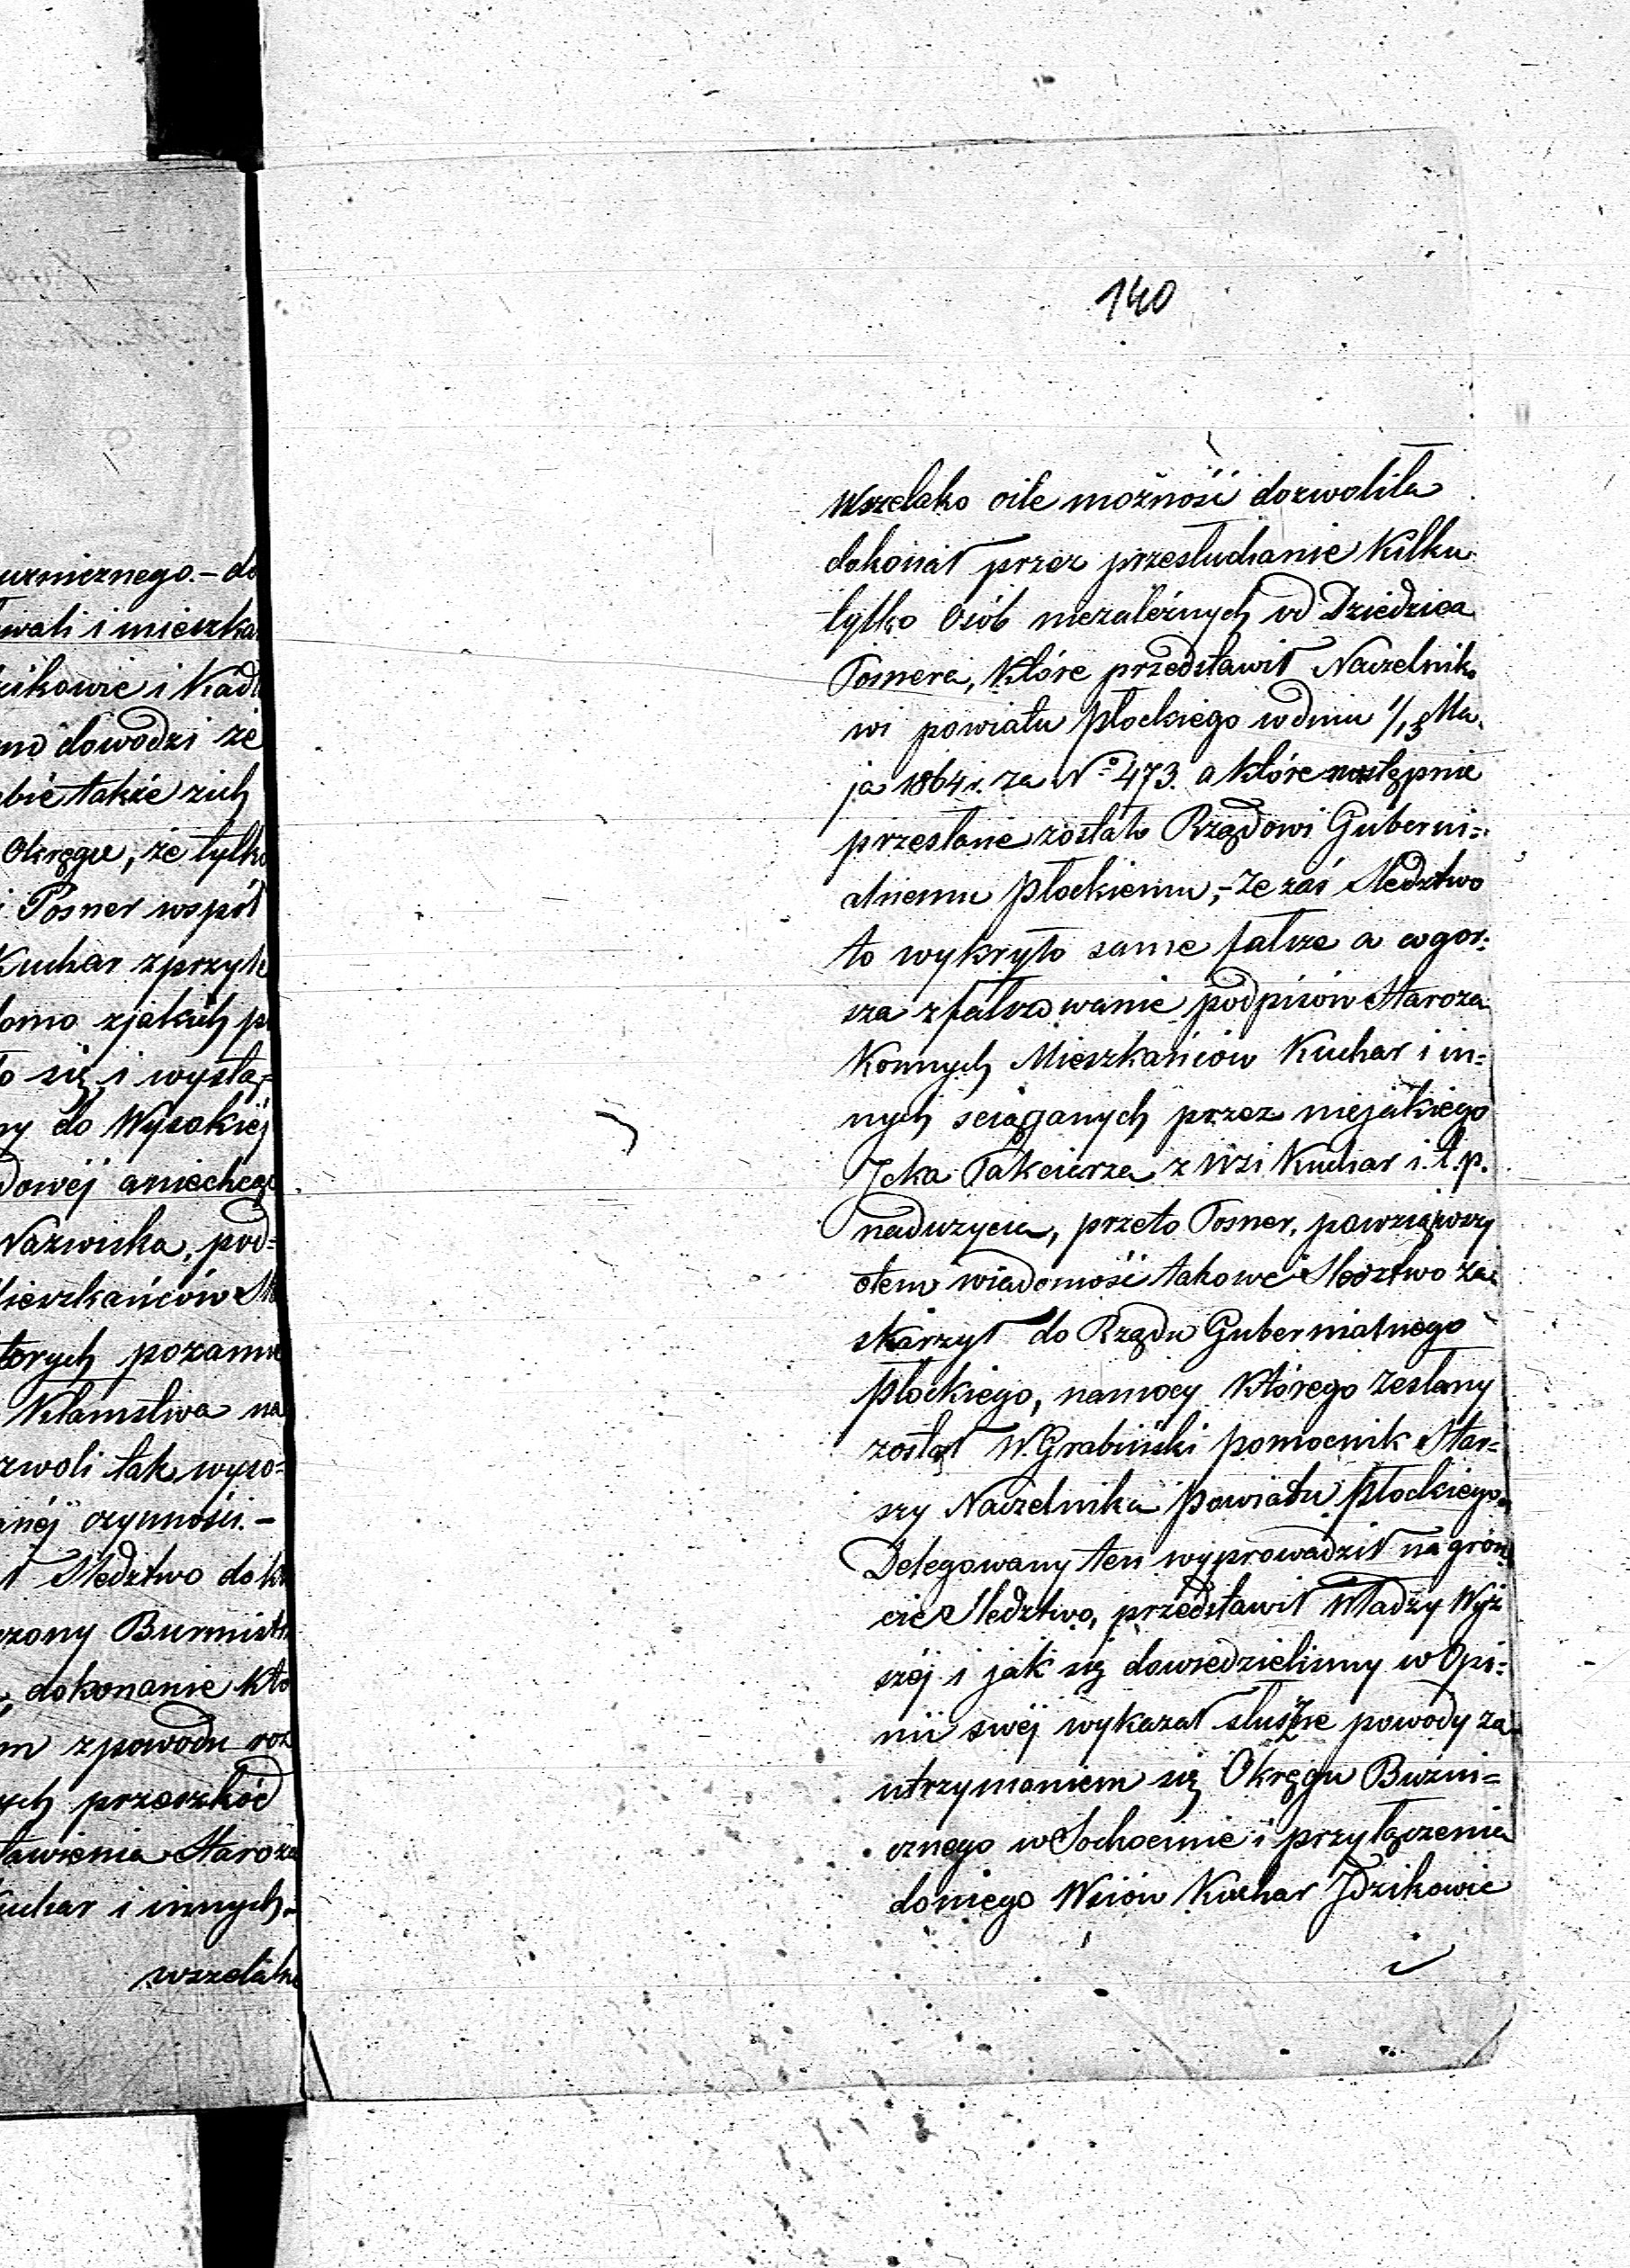 uznicznego. – do
wali i mieszka
zikowie i Kadł
dowodzi że
bie także zich
Okręgu, że tylko
Posner wspól
Kuchar z przyle
domo z jakich p
o się i wystą-
ny do Wysokiej
dowéj a niechcąc
Nazwiska, pod=
ieszkańców
tórych pozamie
Kłamstwa na
zwoli tak wyso=
néj czynności. –
Sledztwo doko
czony Burmistr
dokonanie któ
m z powodu roz
ych przeszkód
tawienia Staroza
uchar i innych.
wszelako
140
Wszelako oile możność dozwoliła
dokonał przez przesłuchanie Kilku
tylko Osób niezależnych od Dziedzica
Posnera, Które przedstawił Naczelniko
wi powiatu Płockiego w dniu 1/13 Ma.
ja 1864 r. za No 473. a które następnie
przesłane zostało Rządowi Guberni=
alnemu Płockiemu, – Ze zaś Sledztwo
to wykryło same fałsze a co gor=
sza zfałszowanie podpisów Staroza
Konnych Mieszkańców Kuchar i in=
nych sciąganych przez niejakiego
Icka Pakciarza z Wsi Kuchar i.t.p.
nadużycia, przeto Posner, powziąwszy
otem wiadomość takowe Sledztwo za=
skarżył do Rządu Gubernialnego
Płockiego, na mocy Którego zesłany
został W. Grabiński pomocnik Star=
szy Naczelnika Powiatu Płockiego.
Delegowany ten wyprowadził na grón
cie Sledztwo, przedstawił Władzy Wyż
széj i jak się dowiedzieliśmy w Opi=
nii swéj wykazał słuszne powody za
utrzymaniem się Okręgu Bużni=
cznego w Sochocinie i przyłączenia
do niego Wsiów Kuchar Jdzikowic